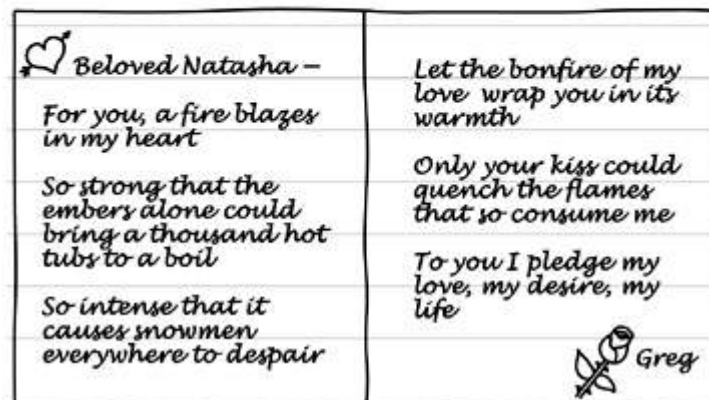 Beloved Natasha –
For you, a fire blazes
in my heart
So strong that the
embers alone could
bring a thousand hot
tubs to a boil
So intense that it
causes snowmen
everywhere to despair
Let the bonfire of my
love wrap you in its
warmth
Only your kiss could
quench the flames
that so consume me
To you I pledge my
love, my desire, my
life
Greg